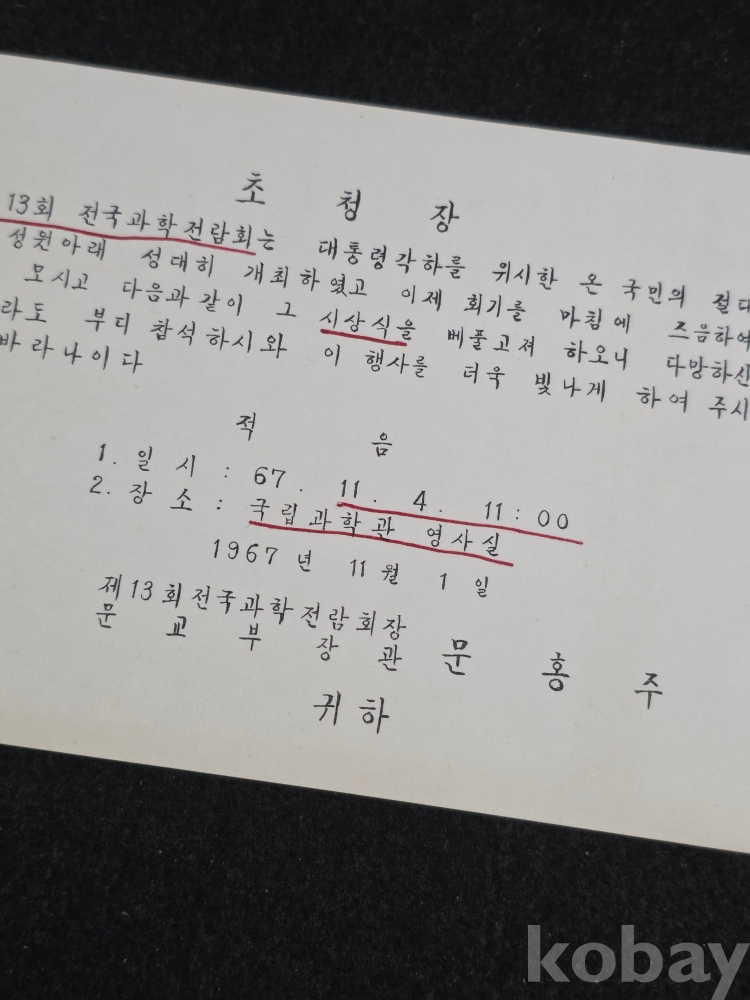 초 청 장
13회 전국과학전람회는 대통령각하를 위시한 온 국민의 절대
성원아래 성대히 개최하였고 이제 회기를 마침에 즈음하여
모시고 다음과같이 그 시상식을 베풀고져 하오니 다망하신
라도 부디 참석하시와 이 행사를 더욱 빛나게 하여 주시
바라나이다
적 음
1. 일 시 : 67. 11. 4. 11:00
2. 장 소 : 국립과학관 영사실
1967년 11월 1일
제13회전국과학전람회장
문 교 부 장 관 문 홍 주
귀하
kobay